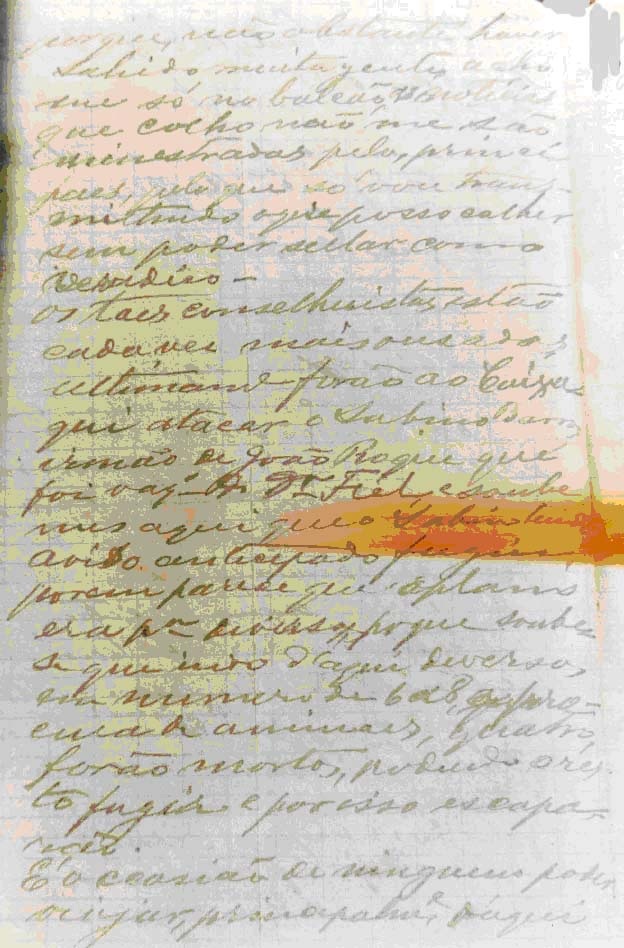 porque, não obstante haver
sahido muita gente, acho
me só no balcão, as noticias
que colho não me são
ministradas pelos princi
paes, pelo que só vou trans-
mittindo o que posso colher
sem poder sellar como
veridico -
Os taes conselheiristas estão
cada vez mais ousados,
ultimame forão ao Caixa
qui atacar o Sabino
irmão de João Roque que
foi vaq. Dr. Fiel, e soube
mos aqui que o Sabino teve
aviso anticipado fugiu,
porem parece que o plano
era pa diverso, porque soube-
se que indo d'aqui diversos,
em numero de 6 a 8, a pro-
cura de animaes, quatro
forão mortos, podendo o res-
to fugir e por isso escapa-
rão.
É occasião de ninguem poder
viajar, principalme d'aqui